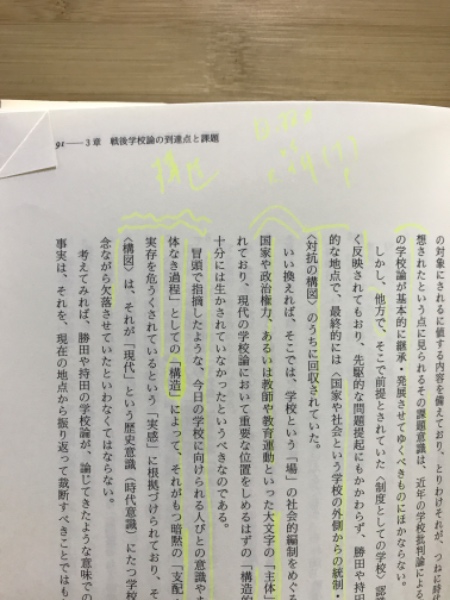 91——3章 戦後学校論の到達点と課題
構造
の対象にされるに値する内容を備えており、とりわけそれが、つねに時代
想されたという点に見られるその課題意識は、近年の学校批判論による
の学校論が基本的に継承・発展させてゆくべきものにほかならない。
しかし、他方で、そこで前提とされていた〈制度としての学校〉認
く反映されてもおり、先駆的な問題提起にもかかわらず、勝田や持田
的な地点で、最終的には〈国家や社会という学校の外側からの統制・
〈対抗の構図〉のうちに回収されていた。
いい換えれば、そこでは、学校という「場」の社会的編制をめぐる
国家や政治権力、あるいは教師や教育運動といった大文字の「主体」
れており、現代の学校論において重要な位置をしめるはずの「構造的
十分には生かされていなかったというべきなのである。
冒頭で指摘したような、今日の学校に向けられる人びとの意識や
体なき過程」としての「構造」によって、それがもつ暗黙の「支配
実存を危うくされているという「実感」に根拠づけられており、そ
〈構図〉は、それが「現代」という歴史意識（時代意識）にたつ学校
念ながら欠落させていたといわなくてはならない。
考えてみれば、勝田や持田の学校論が、論じてきたような意味での
事実は、それを、現在の地点から振り返って裁断すべきことではも